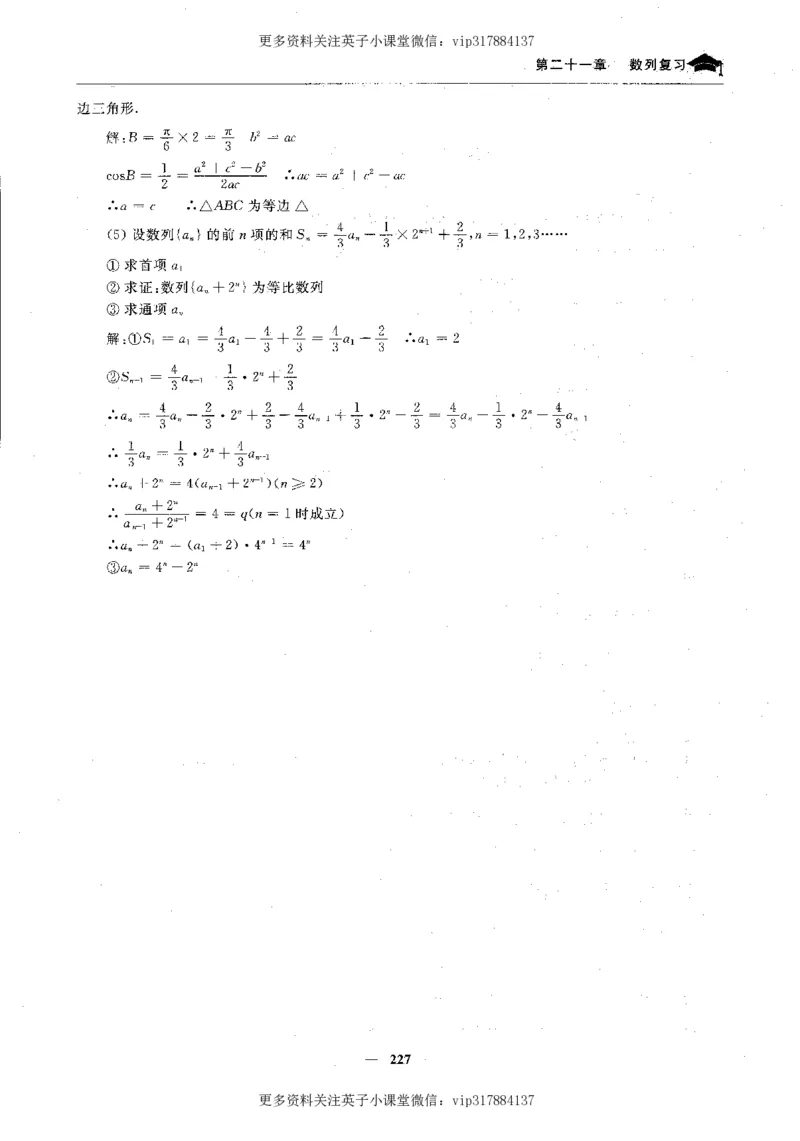 更多资料关注英子小课堂微信：vip317884137
第二十一章 数列复习
边三角形.
解:B = π/6 × 2 = π/3 b² = ac
cosB = 1/2 = (a² + c² − b²)/(2ac) ∴ac = a² + c² − ac
∴a = c ∴△ABC 为等边 △
(5) 设数列{aₙ} 的前 n 项的和 Sₙ = 4/3 aₙ − 1/3 × 2ⁿ⁺¹ + 2/3, n = 1,2,3……
① 求首项 a₁
② 求证:数列{aₙ + 2ⁿ} 为等比数列
③ 求通项 aₙ
解:①S₁ = a₁ = 4/3 a₁ − 4/3 + 2/3 = 4/3 a₁ − 2/3 ∴a₁ = 2
②Sₙ₋₁ = 4/3 aₙ₋₁ − 1/3 · 2ⁿ + 2/3
∴aₙ = 4/3 aₙ − 2/3 · 2ⁿ + 2/3 − 4/3 aₙ₋₁ + 1/3 · 2ⁿ − 2/3 = 4/3 aₙ − 1/3 · 2ⁿ − 4/3 aₙ₋₁
∴ 1/3 aₙ = 1/3 · 2ⁿ + 4/3 aₙ₋₁
∴aₙ + 2ⁿ = 4(aₙ₋₁ + 2ⁿ⁻¹)(n ⩾ 2)
∴ (aₙ + 2ⁿ)/(aₙ₋₁ + 2ⁿ⁻¹) = 4 = q(n = 1 时成立)
∴aₙ + 2ⁿ = (a₁ + 2) · 4ⁿ⁻¹ = 4ⁿ
③aₙ = 4ⁿ − 2ⁿ
— 227
更多资料关注英子小课堂微信：vip317884137